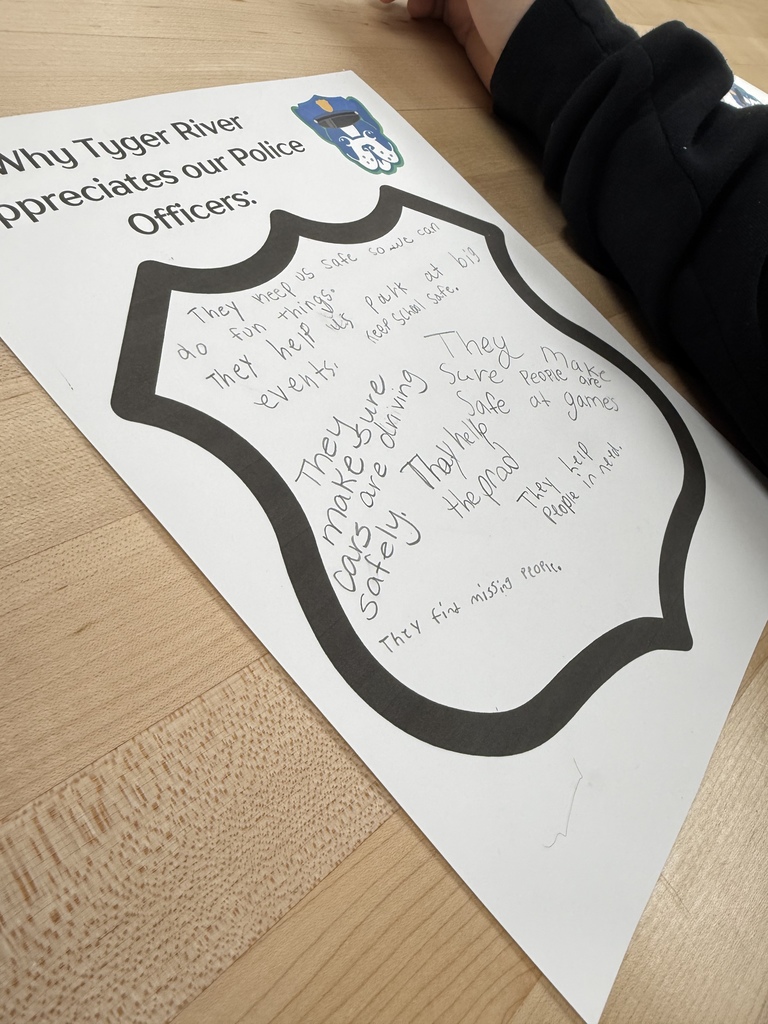 Why Tyger River
ppreciates our Police
Officers:
They keep us safe so we can
do fun things.
They help us park at big
events.
keep school safe.
They make
sure people are
safe at games
They
make sure
cars are driving
safely.
Thay help
the prad
They help
people in need.
They find missing people.